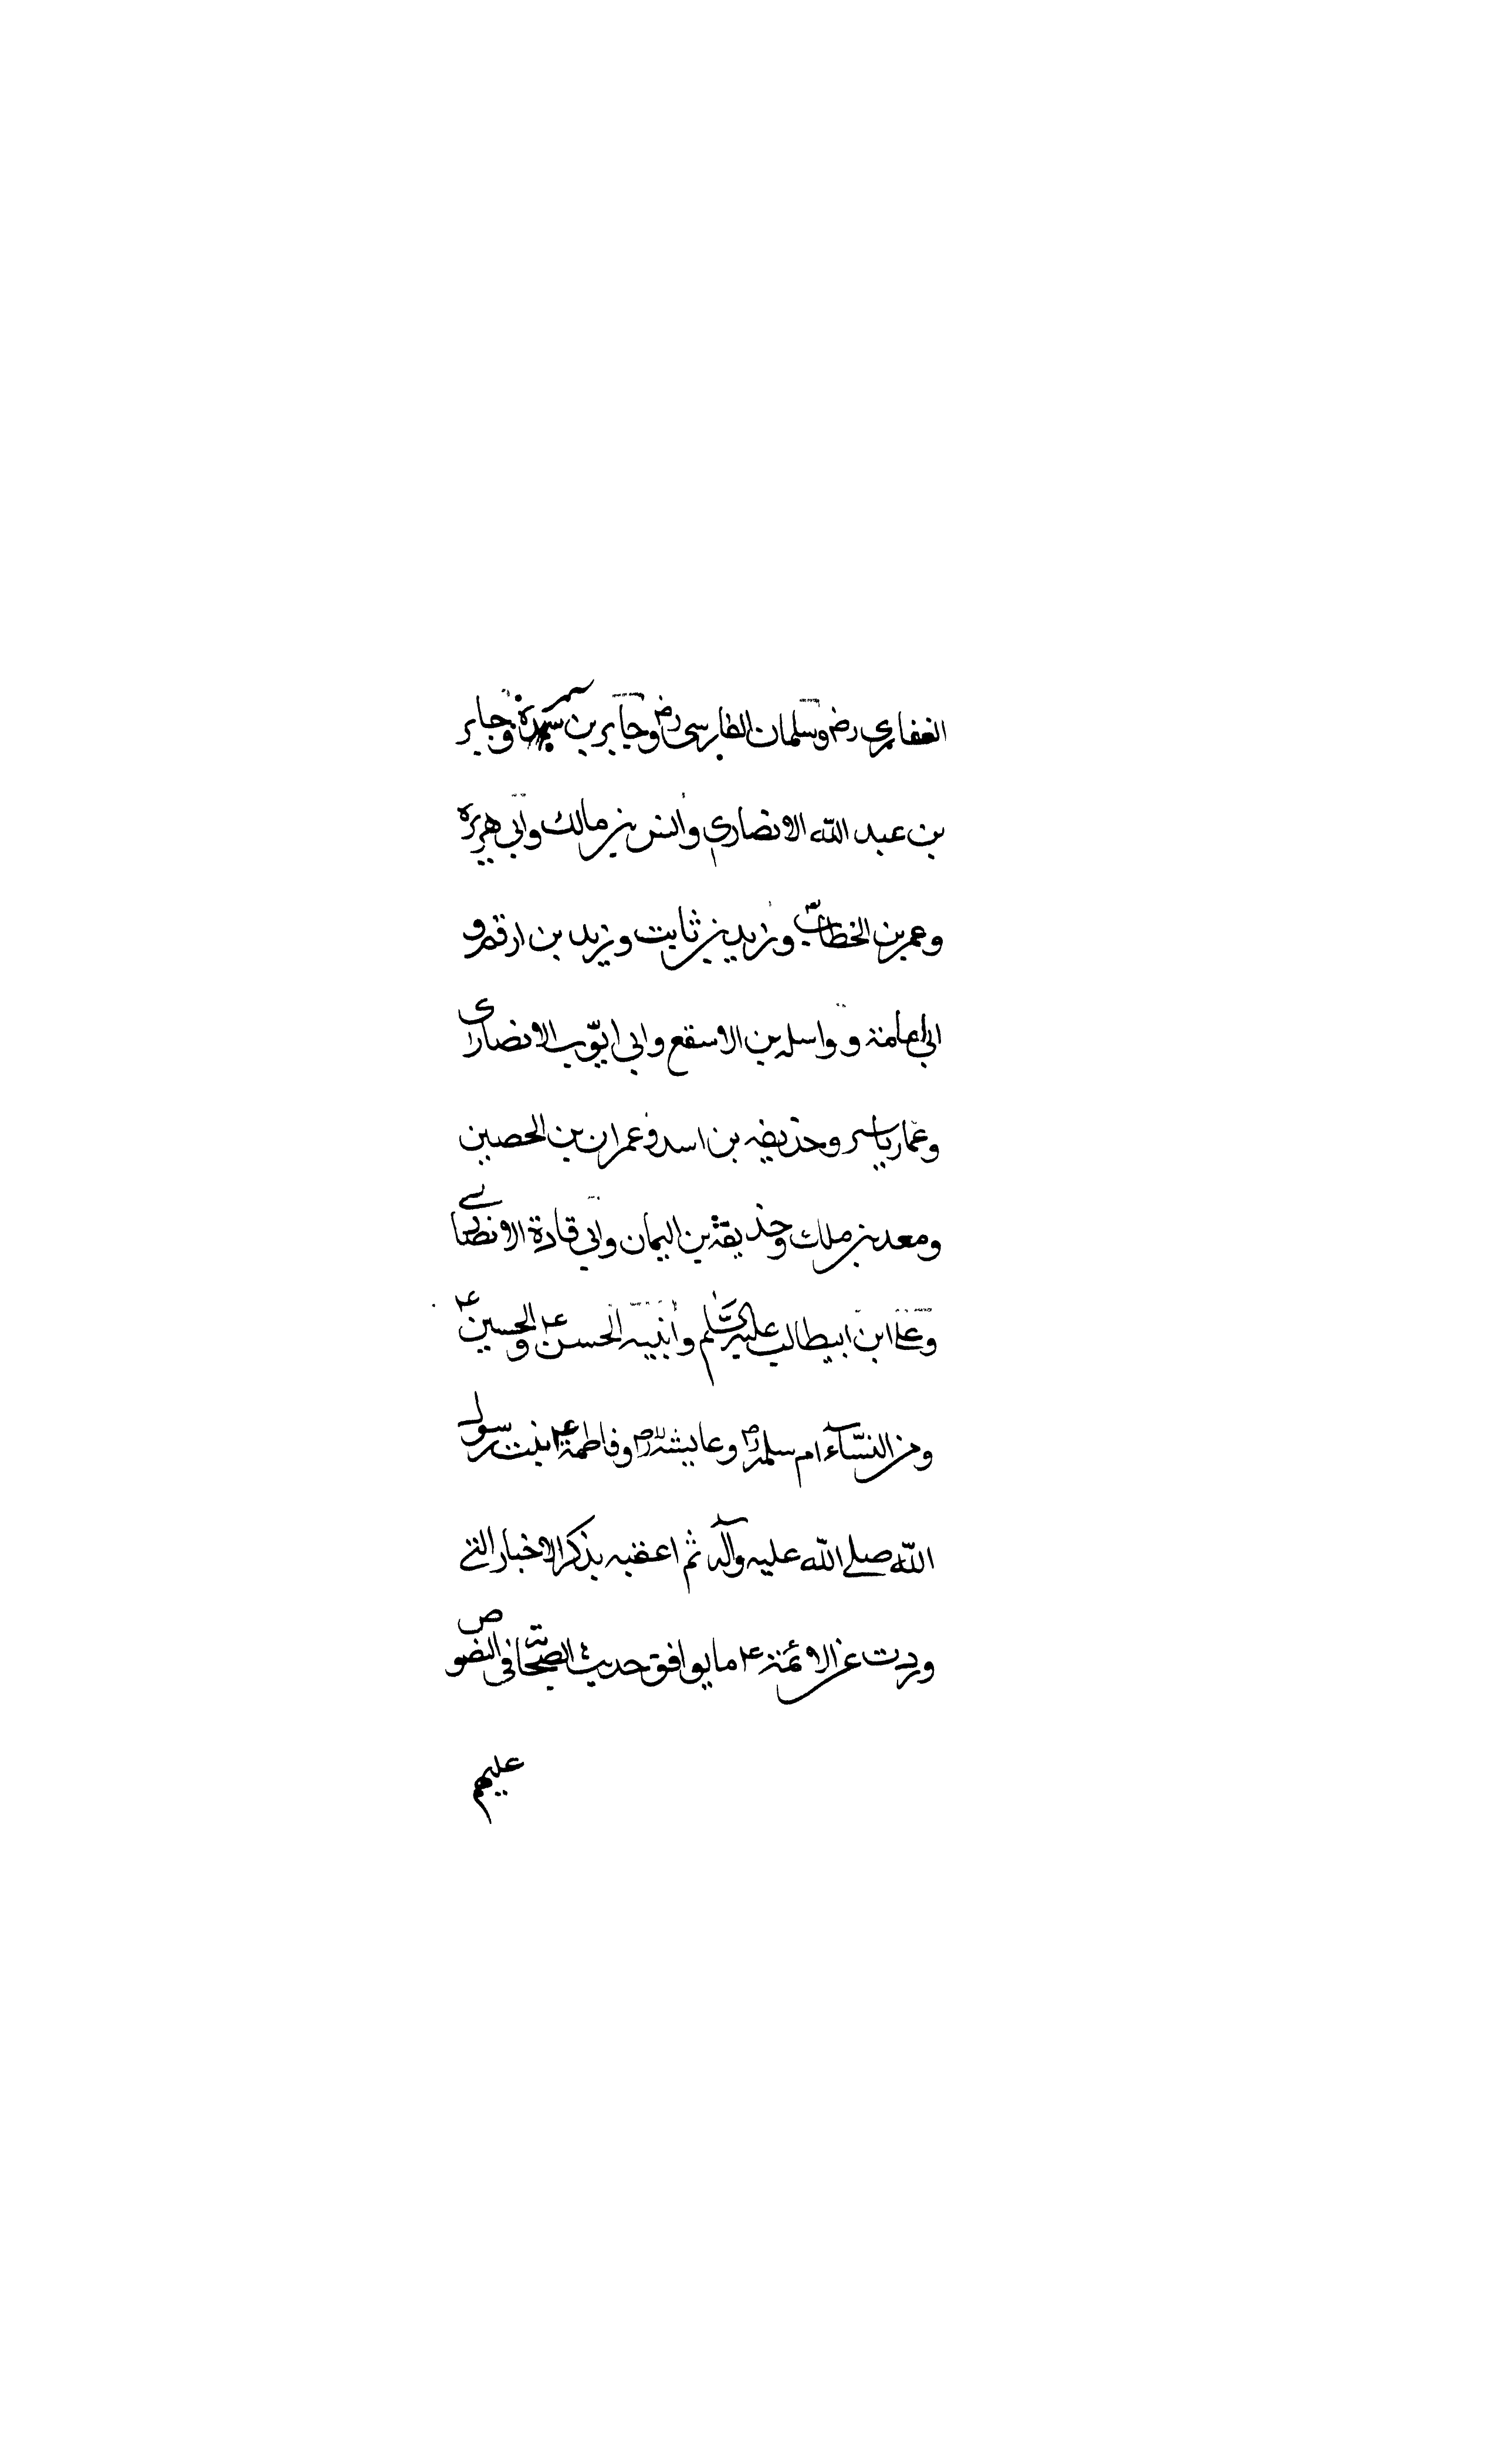 الغفاري رض وسلمان الفارسی رض وجابر بن سمرة وجابر
بن عبد الله الانصاري وانس بن مالك وابی هريرة
وعمر بن الخطاب وزيد بن ثابت وزيد بن ارقم و
ابی امامة و واسله بن الاسقع وابی ايّوب الانصاری
وعمّار ياسر وحذيفه بن اسد وعمران بن الحصين
ومعد بن ملك وحذيفة بن اليمان وابی قادة الانصاری
وعلی ابن ابيطالب عليه السّلم وابنيه الحسن ع والحسين ع
ومن النسّآء ام سلمه رض وعايشه رض وفاطمة ع ابنت رسول
اللّٰه صلی اللّٰه عليه وآله ثم اعقبه بذكر الاخبار التی
وردت عن الائمة ع ما يوافق حديث الصّحابة فی النصوص
عليهم